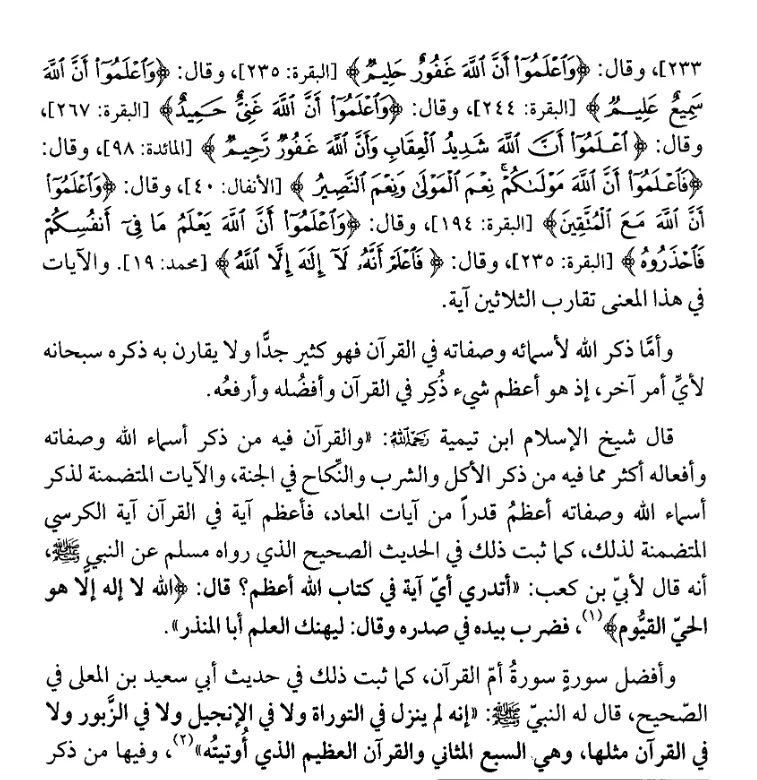 ٢٣٣]، وقال: ﴿وَاعْلَمُوا أَنَّ اللَّهَ غَفُورٌ حَلِيمٌ﴾ [البقرة: ٢٣٥]، وقال: ﴿وَاعْلَمُوا أَنَّ اللَّهَ
سَمِيعٌ عَلِيمٌ﴾ [البقرة: ٢٤٤]، وقال: ﴿وَاعْلَمُوا أَنَّ اللَّهَ غَنِيٌّ حَمِيدٌ﴾ [البقرة: ٢٦٧]،
وقال: ﴿اعْلَمُوا أَنَّ اللَّهَ شَدِيدُ الْعِقَابِ وَأَنَّ اللَّهَ غَفُورٌ رَّحِيمٌ﴾ [المائدة: ٩٨]، وقال:
﴿فَاعْلَمُوا أَنَّ اللَّهَ مَوْلَىٰكُمْ نِعْمَ الْمَوْلَىٰ وَنِعْمَ النَّصِيرُ﴾ [الأنفال: ٤٠]، وقال: ﴿وَاعْلَمُوا
أَنَّ اللَّهَ مَعَ الْمُتَّقِينَ﴾ [البقرة: ١٩٤]، وقال: ﴿وَاعْلَمُوا أَنَّ اللَّهَ يَعْلَمُ مَا فِي أَنفُسِكُمْ
فَاحْذَرُوهُ﴾ [البقرة: ٢٣٥]، وقال: ﴿فَاعْلَمْ أَنَّهُ لَا إِلَٰهَ إِلَّا اللَّهُ﴾ [محمد: ١٩]. والآيات
في هذا المعنى تقارب الثلاثين آية.
وأمَّا ذكر الله لأسمائه وصفاته في القرآن فهو كثير جدًّا ولا يقارن به ذكره سبحانه
لأيِّ أمر آخر، إذ هو أعظم شيء ذُكِر في القرآن وأفضُله وأرفعُه.
قال شيخ الإسلام ابن تيمية رَحِمَهُ اللَّهُ: «والقرآن فيه من ذكر أسماء الله وصفاته
وأفعاله أكثر مما فيه من ذكر الأكل والشرب والنِّكاح في الجنة، والآيات المتضمنة لذكر
أسماء الله وصفاته أعظمُ قدراً من آيات المعاد، فأعظم آية في القرآن آية الكرسي
المتضمنة لذلك، كما ثبت ذلك في الحديث الصحيح الذي رواه مسلم عن النبي ﷺ،
أنه قال لأبيّ بن كعب: «أتدري أيّ آية في كتاب الله أعظم؟ قال: ﴿الله لا إله إلَّا هو
الحيّ القيُّوم﴾(١)، فضرب بيده في صدره وقال: ليهنك العلم أبا المنذر».
وأفضل سورةٍ سورةُ أمّ القرآن، كما ثبت ذلك في حديث أبي سعيد بن المعلى في
الصّحيح، قال له النبيّ ﷺ: «إنه لم ينزل في التوراة ولا في الإنجيل ولا في الزَّبور ولا
في القرآن مثلها، وهي السبع المثاني والقرآن العظيم الذي أُوتيتُه»(٢)، وفيها من ذكر